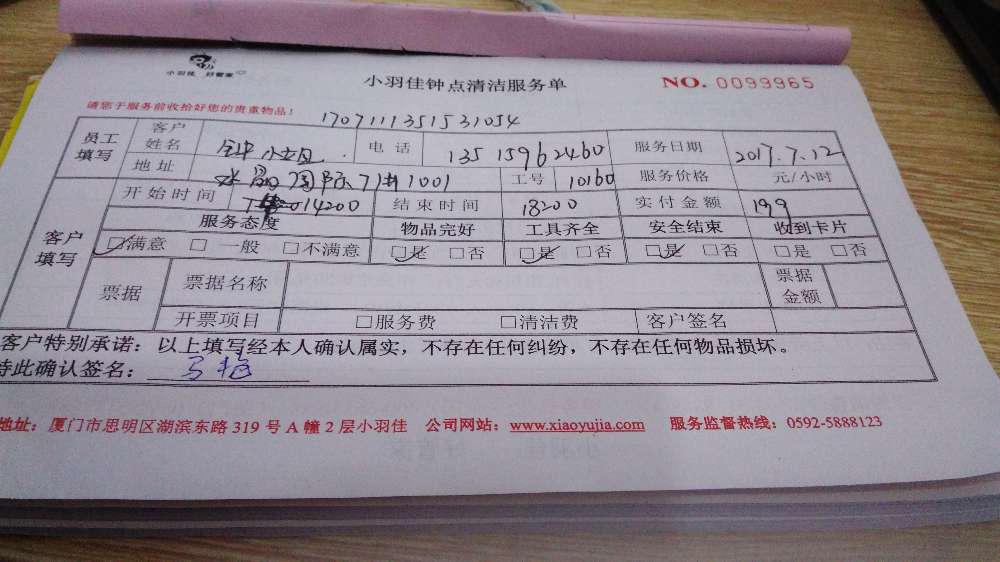 小羽佳 好管家
小羽佳钟点清洁服务单
NO. 0099965
请您于服务前收拾好您的贵重物品!
1707111351531054
员工填写 客户姓名 电话 13515962460 服务日期 2017.7.12
地址 国际7#1001 工号 10160 服务价格 元/小时
客户填写 开始时间 14200 结束时间 18200 实付金额 199
服务态度 物品完好 工具齐全 安全结束 收到卡片
☑满意 □一般 □不满意 ☑是 □否 ☑是 □否 ☑是 □否 □是 □否
票据 票据名称 票据金额
开票项目 □服务费 □清洁费 客户签名
客户特别承诺:以上填写经本人确认属实,不存在任何纠纷,不存在任何物品损坏。
特此确认签名:
地址:厦门市思明区湖滨东路 319 号 A 幢 2 层小羽佳 公司网站:www.xiaoyujia.com 服务监督热线:0592-5888123